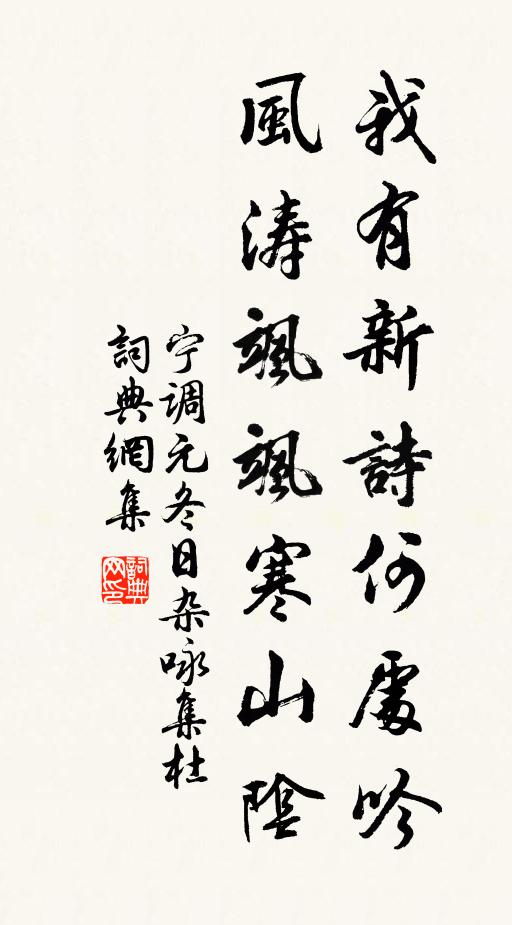 我有新詩何處吟
風涛颯颯寒山陰
宁调元冬日杂咏集杜
詞典網集
詞典网印